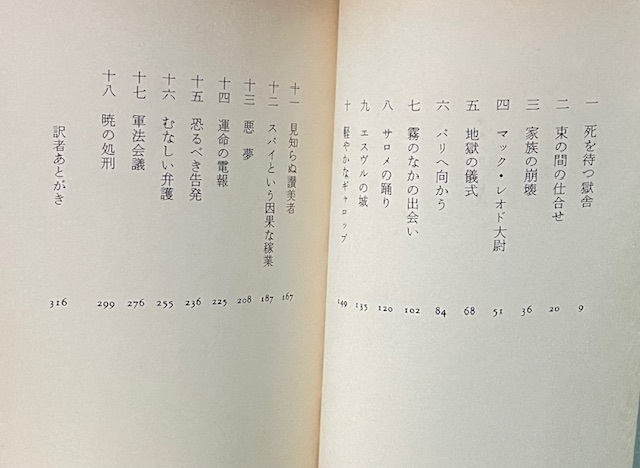 一 死を待つ獄舎 9
二 束の間の仕合せ 20
三 家族の崩壊 36
四 マック・レオド大尉 51
五 地獄の儀式 68
六 パリへ向かう 84
七 霧のなかの出会い 102
八 サロメの踊り 120
九 エスヴルの城 135
十 軽やかなギャロップ 149
十一 見知らぬ讃美者 167
十二 スパイという因果な稼業 187
十三 悪夢 208
十四 運命の電報 225
十五 恐るべき告発 236
十六 むなしい弁護 255
十七 軍法会議 276
十八 暁の処刑 299
訳者あとがき 316